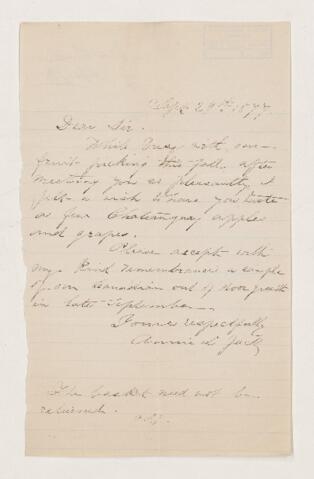 Sept 29th 1877.
Dear Sir.
While busy with our
fruit picking this fall, after
meeting you so pleasantly I
felt a wish to have you taste
a few Chateauguay apples
and grapes.
Please accept with
my kind remembrance a sample
of our Canadian out of door growth
in late September.
Yours respectfully
Annie L Jack
The basket need not be
returned.